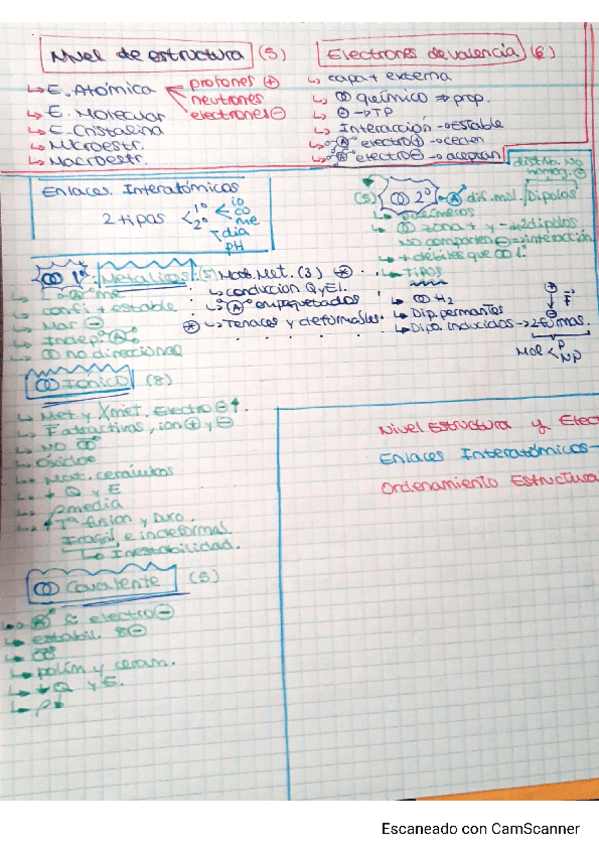 Nivel de estructura (5)
↳ E. Atómica
protones ⊕
neutrones
electrones ⊖
↳ E. Molecular
↳ E. Cristalina
↳ Microestr.
↳ Macroestr.
Electrones de valencia (6)
↳ capa + externa
↳ químico ⇒ prop.
↳ ⊖ → TP
↳ Interacción → estable
↳ A electro ⊕ → ceden
↳ A electro ⊖ → aceptan
Enlaces Interatómicos
2 tipos < 1º
2º
io
co
me
dia
pH
(5) 2º → A dif. mol. / Dipolos
distrib. no
↳ polímeros
↳ zona + y - = 2 dipolos
No comparten ⊖ = interacción
↳ + débiles que 1º
↳ Tipos
↳ H2
↳ Dip. permantes
↳ Dip. inducidos → 2 formas.
Mol < P
NP
F
1º Metálicos (5) Mat. Met. (3) ⊛
↳ confi + estable
↳ Mar ⊖
↳ Indep. A
↳ no direccional
↳ conducción Q y El.
↳ A empaquetados
⊛ ↳ Tenaces y deformables.
Iónico (8)
↳ Met y Xmet. Electro ⊖ ↑
↳ F atractivas, ion ⊕ y ⊖
↳ NO
↳ Óxidos
↳ Mat. cerámicos
↳ ↓ Q y E
↳ ρ media
↳ Tª fusión y Duro.
Frágil e indeformal
↳ Inestabilidad.
Covalente (5)
↳ A ≈ electro ⊖
↳ estabil. 8 ⊖
↳ polím y ceram.
↳ ↓ Q y E.
↳ ρ ↓
Nivel Estructura y Elect
Enlaces Interatómicos -
Ordenamiento Estructura
Escaneado con CamScanner